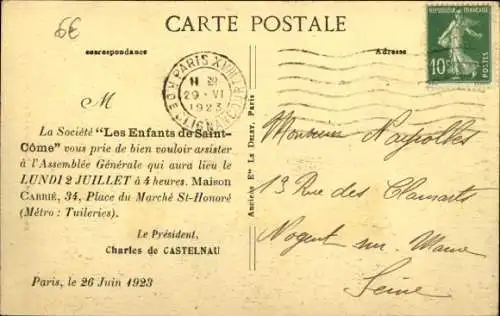 6€
CARTE POSTALE
correspondance
Adresse
REPUBLIQUE FRANÇAISE
10c
PARIS XVIII
11
29 - VI
1923
R. DE CLIGNANCOURT
M
La Société "Les Enfants de Saint-
Côme" vous prie de bien vouloir assister
à l'Assemblée Générale qui aura lieu le
LUNDI 2 JUILLET à 4 heures. Maison
CARRIÉ, 34, Place du Marché St-Honoré
(Métro : Tuileries).
Le Président,
Charles de CASTELNAU
Paris, le 26 Juin 1923
Anciens Ets Le Deley, Paris
Monsieur Nayrolles
13 Rue des Clamarts
Nogent sur Marne
Seine